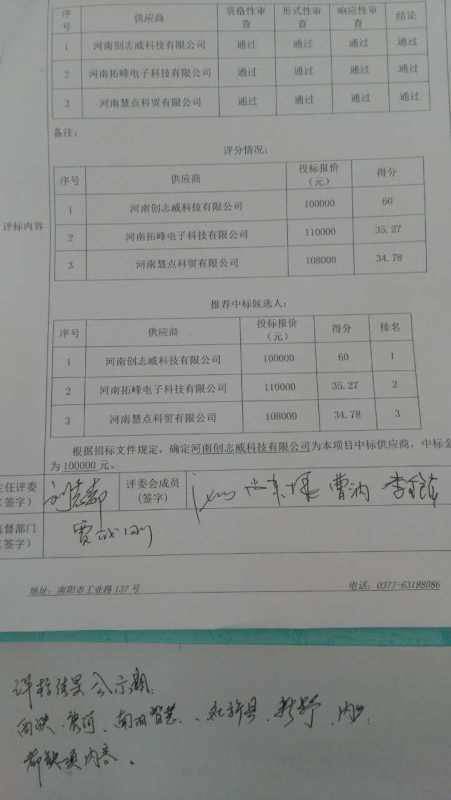 序号 供应商 资格性审查 形式性审查 响应性审查 结论
1 河南创志威科技有限公司 通过 通过 通过 通过
2 河南拓峰电子科技有限公司 通过 通过 通过 通过
3 河南慧点科贸有限公司 通过 通过 通过 通过
备注:
评分情况:
评标内容
序号 供应商 投标报价(元) 得分
1 河南创志威科技有限公司 100000 60
2 河南拓峰电子科技有限公司 110000 35.27
3 河南慧点科贸有限公司 108000 34.78
推荐中标候选人:
序号 供应商 投标报价(元) 得分 排名
1 河南创志威科技有限公司 100000 60 1
2 河南拓峰电子科技有限公司 110000 35.27 2
3 河南慧点科贸有限公司 108000 34.78 3
根据招标文件规定,确定河南创志威科技有限公司为本项目中标供应商,中标金
为 100000 元。
主任评委(签字) 评委会成员(签字) 曹
监督部门(签字) 贾
地址:南阳市工业路 137 号 电话:0377-63188086
评标结果公示期
西峡、唐河、南召、社旗县、新野、内乡
都缺项内容。